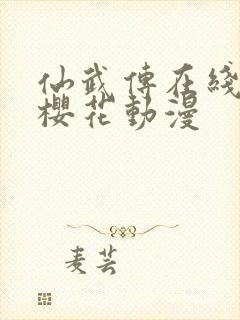 仙武傳在綫
櫻花動漫
麦芸